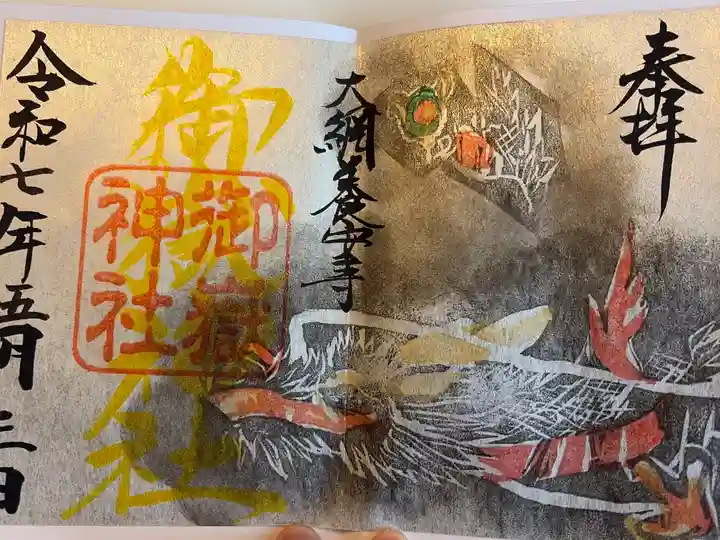 奉拝
大網養安寺
御嶽神社
御嶽
神社
令和七年五月三日